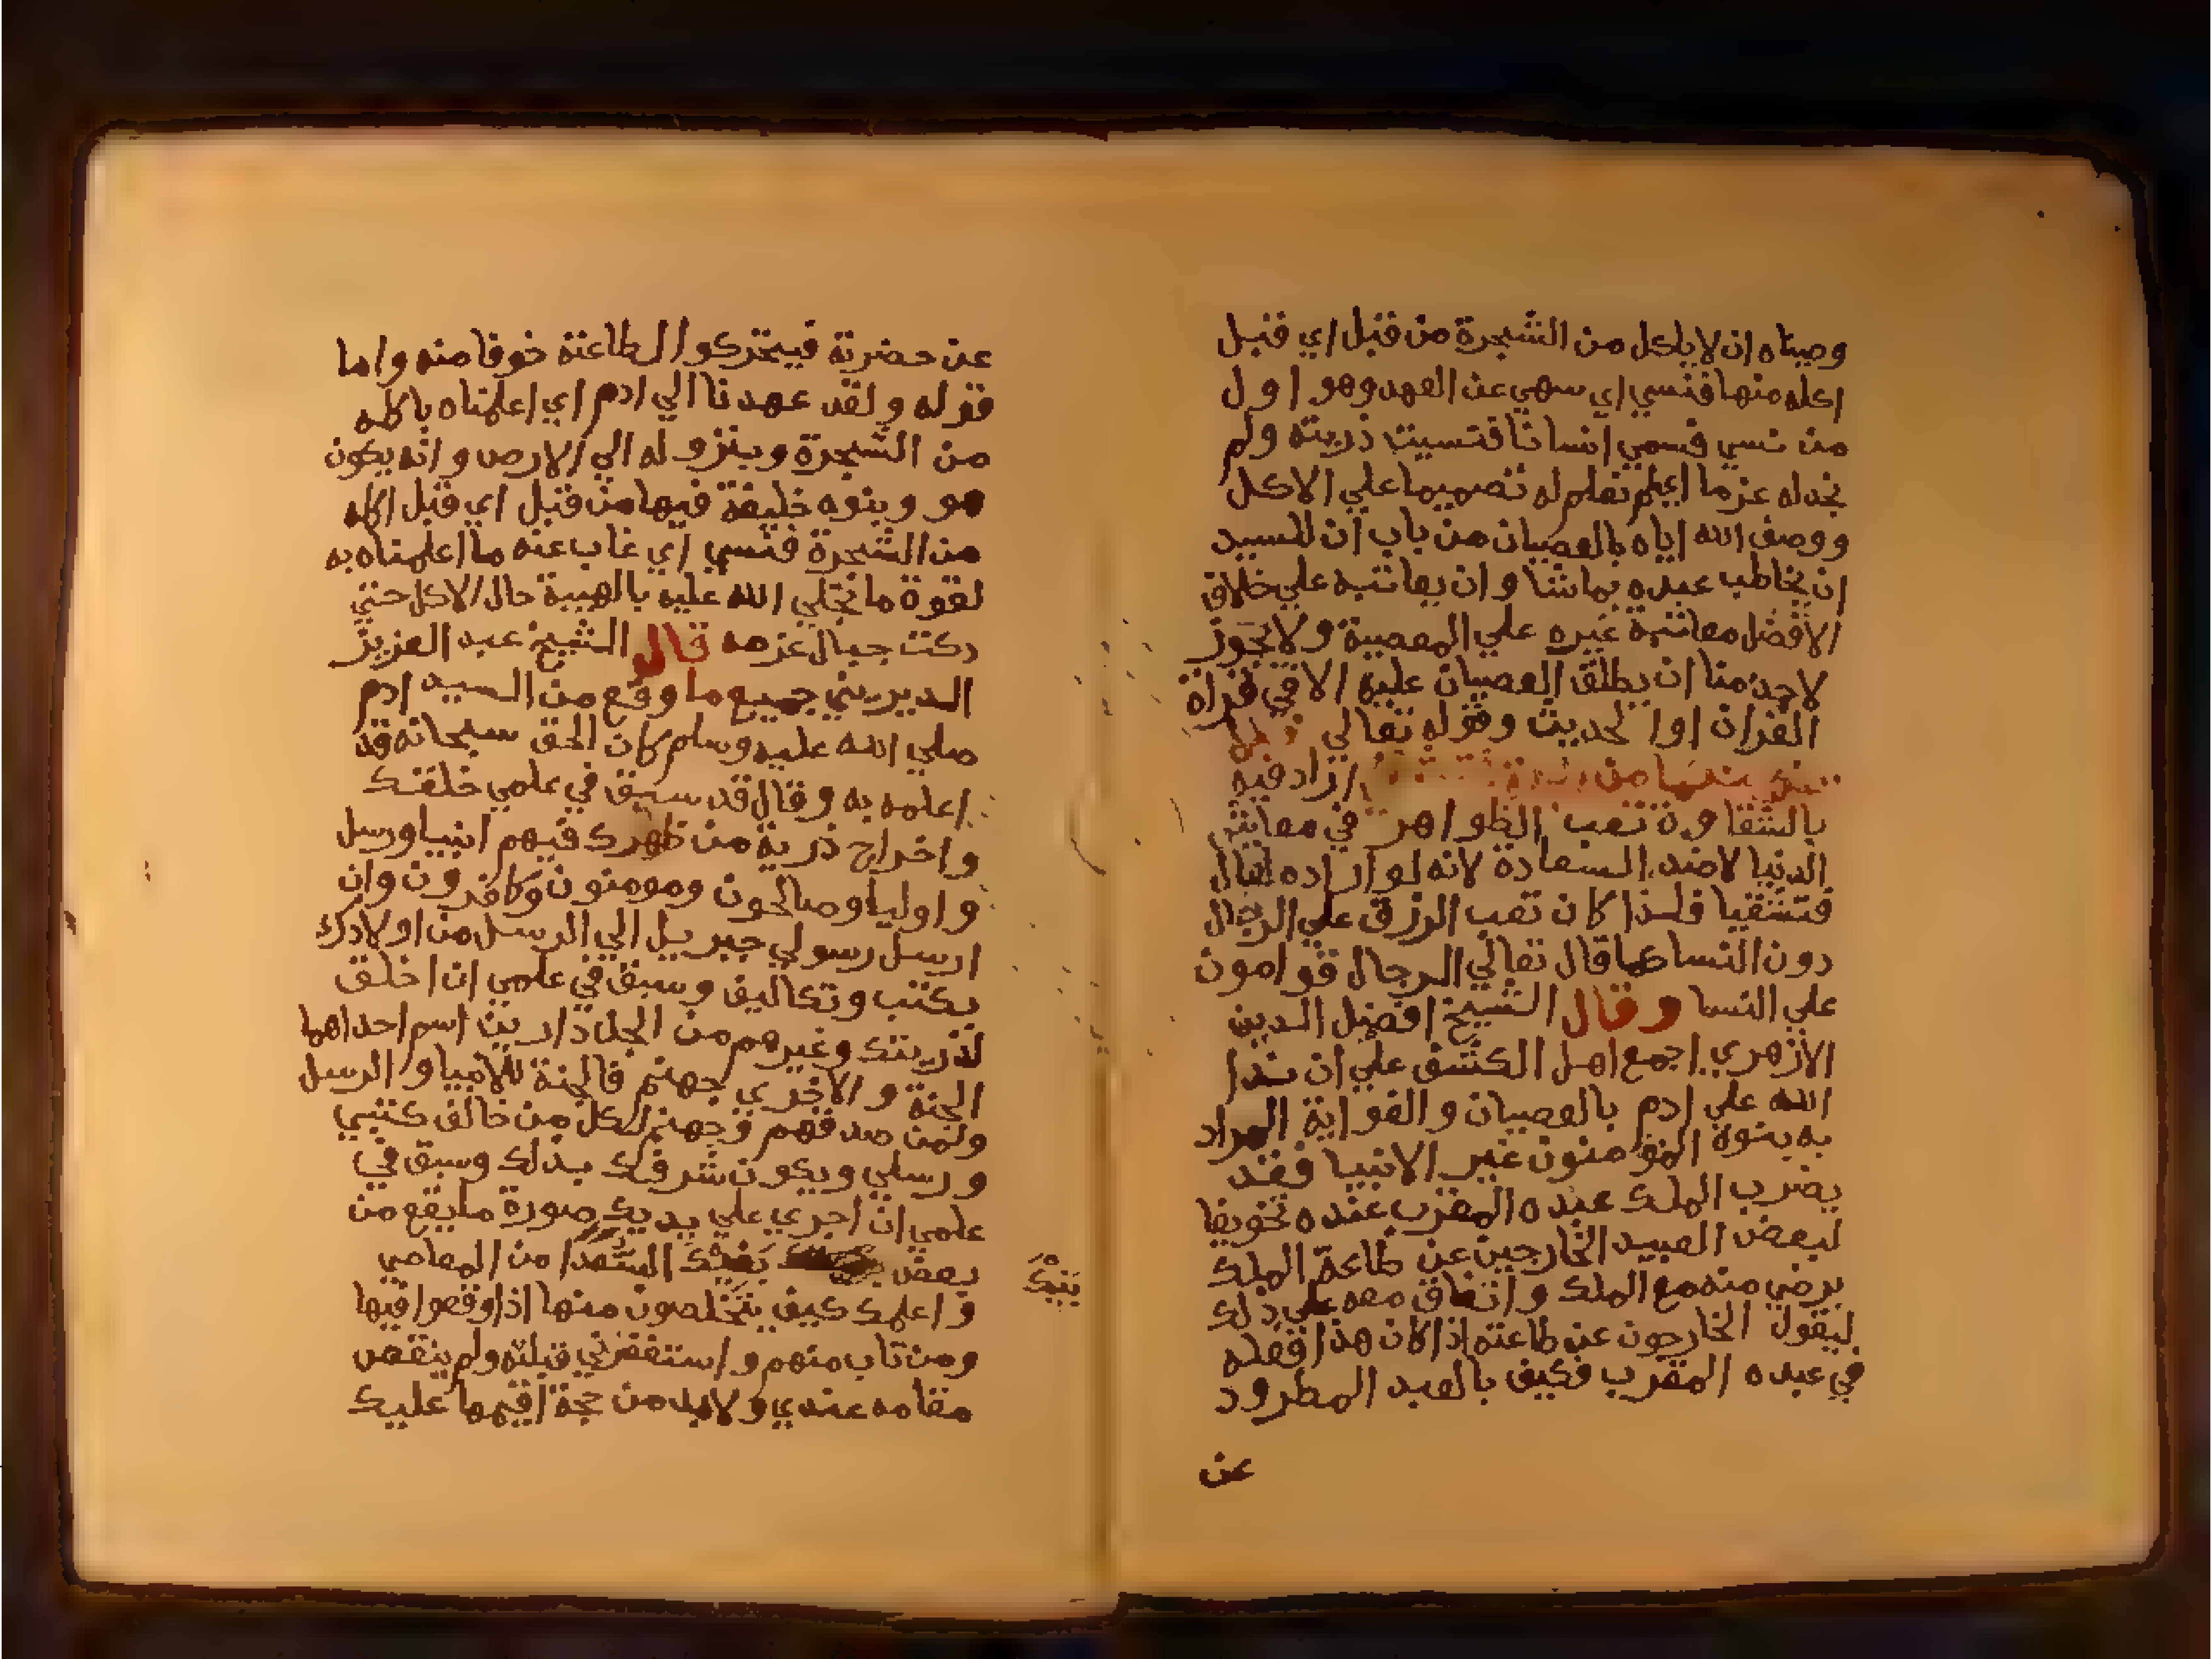 وصيناه ان لا ياكل من الشجرة من قبل اي قبل
اكله منها فنسي اي سهي عن العهد وهو اول
من نسي فسمي انسانا فنسيت ذريته ولم
نجد له عزما اي لم نعلم له تصميما علي الاكل
ووصف الله اياه بالعصيان من باب ان للسيد
ان يخاطب عبده بما شا وان يعاتبه علي خلاف
الافضل معاتبة غيره علي المعصية ولا يجوز
لاحد منا ان يطلق العصيان عليه الا في قراة
القران او الحديث وقوله تعالي فلا
من اراد فيه
بالشقاوة تعب الظواهر في معايش
الدنيا لا ضد السعادة لانه لو اراده لقال
فتشقيا فلذا كان تعب الرزق علي الرجال
دون النسا كما قال تعالي الرجال قوامون
علي النسا وقال الشيخ افضل الدين
الازهري اجمع اهل الكشف علي ان ندا
الله علي ادم بالعصيان والغواية المراد
به بنوه المومنون غير الانبيا فقد
يضرب الملك عبده المقرب عنده تخويفا
لبعض العبيد الخارجين عن طاعة الملك
برضي منه مع الملك واتفاق معه علي ذلك
ليقول الخارجون عن طاعته اذا كان هذا فعله
في عبده المقرب فكيف بالعبد المطرود
عن
عن حضرته فيتركوا الطاعته خوفا منه واما
قوله ولقد عهدنا الي ادم اي اعلمناه باكله
من الشجرة وبنزوله الي الارض وانه يكون
هو وبنوه خليفة فيها من قبل اي قبل اكله
من الشجرة فنسي اي غاب عنه ما اعلمناه به
لقوة ما تجلي الله عليه بالهيبة حال الاكل حتي
دكت جبال عزمه قال الشيخ عبد العزيز
الديريني جميع ما وقع من السيد ادم
صلي الله عليه وسلم كان الحق سبحانه قد
اعلمه به وقال قد سبق في علمي خلقك
واخراج ذرية من ظهرك فيهم انبيا ورسل
واوليا وصالحون ومومنون وكافرون وان
ارسل رسولي جبريل الي الرسل من اولادك
بكتب وتكاليف وسبق في علمي ان اخلق
لذريتك وغيرهم من الجن دارين اسم احداهما
الجنة والاخري جهنم فالجنة للانبيا والرسل
ولمن صدقهم وجهنم لكل من خالف كتبي
ورسلي ويكون شرفك بذلك وسبق في
علمي ان اجري علي يديك صورة ما يقع من
بعض بنيك السعدا من المعاصي
بنيك
واعلمك كيف يتخلصون منها اذا وقعوا فيها
ومن تاب منهم واستغفرني قبلته ولم ينقص
مقامه عندي ولا بد من حجة اقيمها عليك